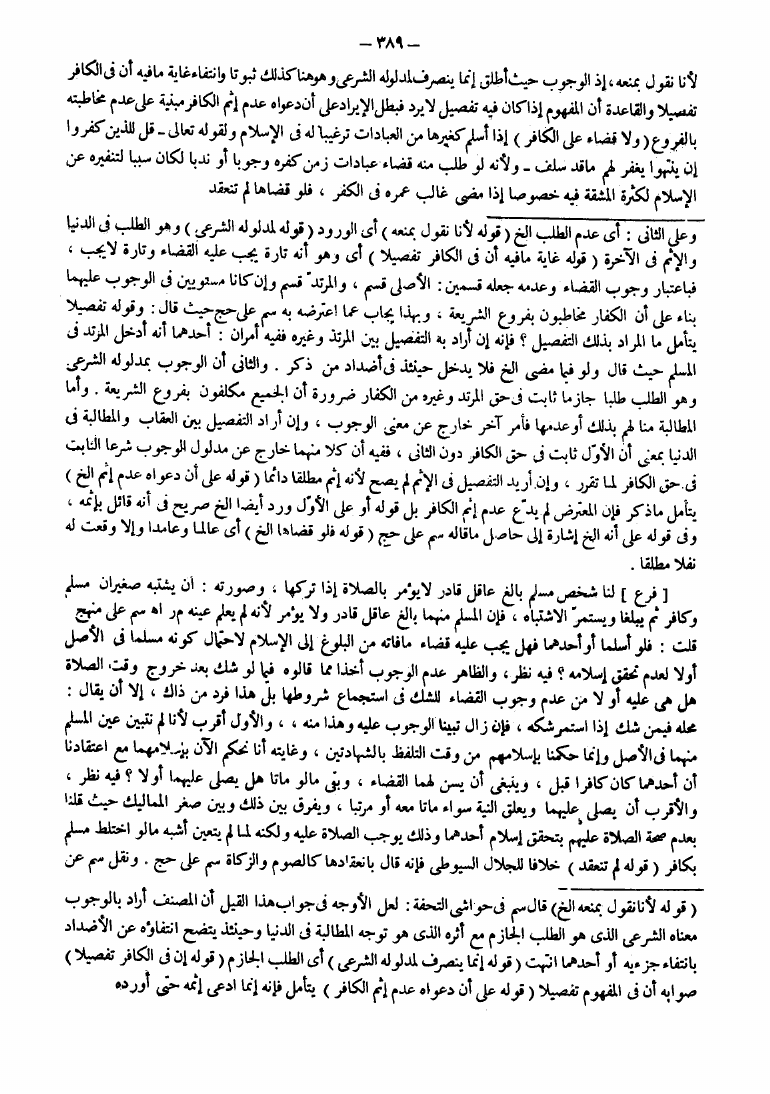 – ٣٨٩ –
لأنا نقول بمنعه، إذ الوجوب حيث أطلق إنما ينصرف لمدلوله الشرعى وهو هنا كذلك ثبوتا وانتفاء غاية مافيه أن فى الكافر
تفصيلا والقاعدة أن المفهوم إذا كان فيه تفصيل لا يرد فبطل الإيراد على أن دعواه عدم إثم الكافر مبنية على عدم مخاطبته
بالفروع (ولا قضاء على الكافر) إذا أسلم كغيرها من العبادات ترغيبا له فى الإسلام ولقوله تعالى ــ قل للذين كفروا
إن ينتهوا يغفر لهم ماقد سلف ــ ولأنه لو طلب منه قضاء عبادات زمن كفره وجوبا أو ندبا لكان سببا لتنفيره عن
الإسلام لكثرة المشقة فيه خصوصا إذا مضى غالب عمره فى الكفر ، فلو قضاها لم تنعقد
وعلى الثانى : أى عدم الطلب الخ (قوله لأنا نقول بمنعه) أى الورود (قوله لمدلوله الشرعى) وهو الطلب فى الدنيا
والإثم فى الآخرة (قوله غاية مافيه أن فى الكافر تفصيلا) أى وهو أنه تارة يجب عليه القضاء وتارة لايجب ،
فباعتبار وجوب القضاء وعدمه جعله قسمين : الأصلى قسم ، والمرتدّ قسم وإن كانا مستويين فى الوجوب عليهما
بناء على أن الكفار مخاطبون بفروع الشريعة ، وبهذا يجاب عما اعترضه به سم على حج حيث قال : وقوله تفصيلا
يتأمل ما المراد بذلك التفصيل ؟ فإنه إن أراد به التفصيل بين المرتدّ وغيره ففيه أمران : أحدهما أنه أدخل المرتد فى
المسلم حيث قال ولو فيما مضى الخ فلا يدخل حينئذ فى أضداد من ذكر . والثانى أن الوجوب بمدلوله الشرعى
وهو الطلب طلبا جازما ثابت فى حق المرتد وغيره من الكفار ضرورة أن الجميع مكلفون بفروع الشريعة . وأما
المطالبة منا لهم بذلك أو عدمها فأمر آخر خارج عن معنى الوجوب ، وإن أراد التفصيل بين العقاب والمطالبة فى
الدنيا بمعنى أن الأوّل ثابت فى حق الكافر دون الثانى ، ففيه أن كلا منهما خارج عن مدلول الوجوب شرعا الثابت
فى حق الكافر لما تقرر ، وإن أريد التفصيل فى الإثم لم يصح لأنه إثم مطلقا دائما (قوله على أن دعواه عدم إثم الخ)
يتأمل ماذكر فإن المعترض لم يدّع عدم إثم الكافر بل قوله أو على الأوّل ورد أيضا الخ صريح فى أنه قائل بإثمه ،
وفى قوله على أنه الخ إشارة إلى حاصل ماقاله سم على حج (قوله فلو قضاها الخ) أى عالما وعامدا وإلا وقعت له
نفلا مطلقا .
[ فرع ] لنا شخص مسلم بالغ عاقل قادر لايؤمر بالصلاة إذا تركها ، وصورته : أن يشتبه صغيران مسلم
وكافر ثم يبلغا ويستمرّ الاشتباه ، فإن المسلم منهما بالغ عاقل قادر ولا يؤمر لأنه لم يعلم عينه م ر اه سم على منهج
قلت : فلو أسلما أو أحدهما فهل يجب عليه قضاء مافاته من البلوغ إلى الإسلام لاحتمال كونه مسلما فى الأصل
أولا لعدم تحقق إسلامه ؟ فيه نظر، والظاهر عدم الوجوب أخذا مما قالوه فيما لو شك بعد خروج وقت الصلاة
هل هى عليه أو لا من عدم وجوب القضاء للشك فى استجماع شروطها بل هذا فرد من ذاك ، إلا أن يقال :
محله فيمن شك إذا استمر شكه ، فإن زال تبينا الوجوب عليه وهذا منه ، ، والأول أقرب لأنا لم نتبين عين المسلم
منهما فى الأصل وإنما حكمنا بإسلامهم من وقت التلفظ بالشهادتين ، وغايته أنا نحكم الآن بإسلامهما مع اعتقادنا
أن أحدهما كان كافرا قبل ، وينبغى أن يسن لهما القضاء ، وبقى مالو ماتا هل يصلى عليهما أولا ؟ فيه نظر ،
والأقرب أن يصلى عليهما ويعلق النية سواء ماتا معه أو مرتبا ، ويفرق بين ذلك وبين صغر المماليك حيث قلنا
بعدم صحة الصلاة عليهم بتحقق إسلام أحدهما وذلك يوجب الصلاة عليه ولكنه لما لم يتعين أشبه مالو اختلط مسلم
بكافر (قوله لم تنعقد) خلافا للجلال السيوطى فإنه قال بانعقادها كالصوم والزكاة سم على حج . ونقل سم عن
(قوله لأنا نقول بمنعه الخ) قال سم فى حواشى التحفة : لعل الأوجه فى جواب هذا القيل أن المصنف أراد بالوجوب
معناه الشرعى الذى هو الطلب الجازم مع أثره الذى هو توجه المطالبة فى الدنيا وحينئذ يتضح انتفاؤه عن الأضداد
بانتفاء جزءيه أو أحدهما انتهت (قوله إنما ينصرف لمدلوله الشرعى) أى الطلب الجازم (قوله إن فى الكافر تفصيلا)
صوابه أن فى المفهوم تفصيلا (قوله على أن دعواه عدم إثم الكافر) يتأمل فإنه إنما ادعى إثمه حتى أورده